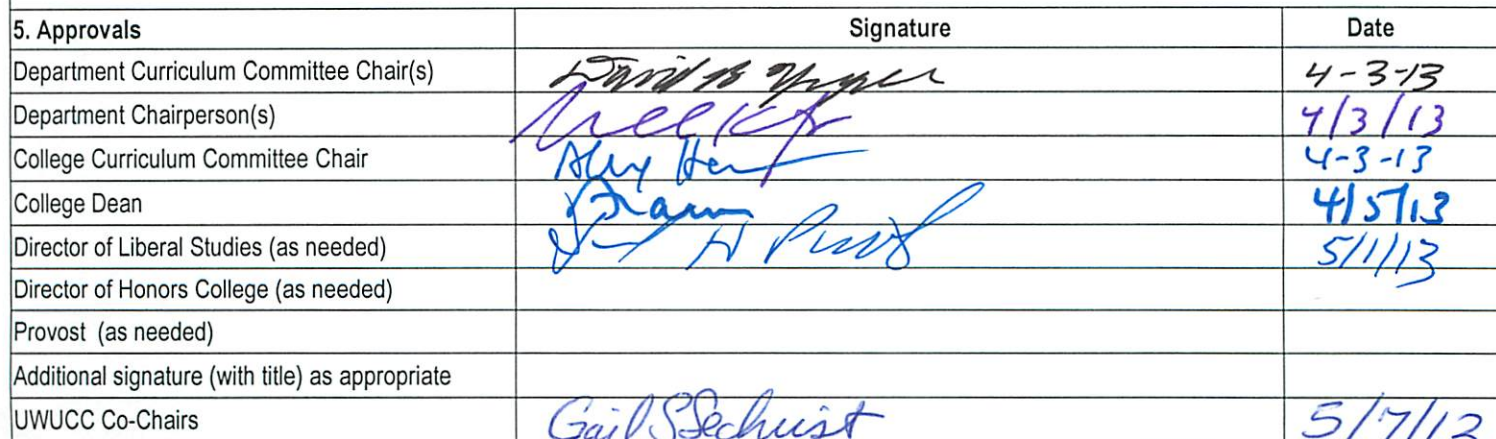 5. Approvals Signature Date
Department Curriculum Committee Chair(s) David B 4-3-13
Department Chairperson(s) 4/3/13
College Curriculum Committee Chair 4-3-13
College Dean 4/5/13
Director of Liberal Studies (as needed) 5/1/13
Director of Honors College (as needed)
Provost (as needed)
Additional signature (with title) as appropriate
UWUCC Co-Chairs Gail S Sechrist 5/7/13